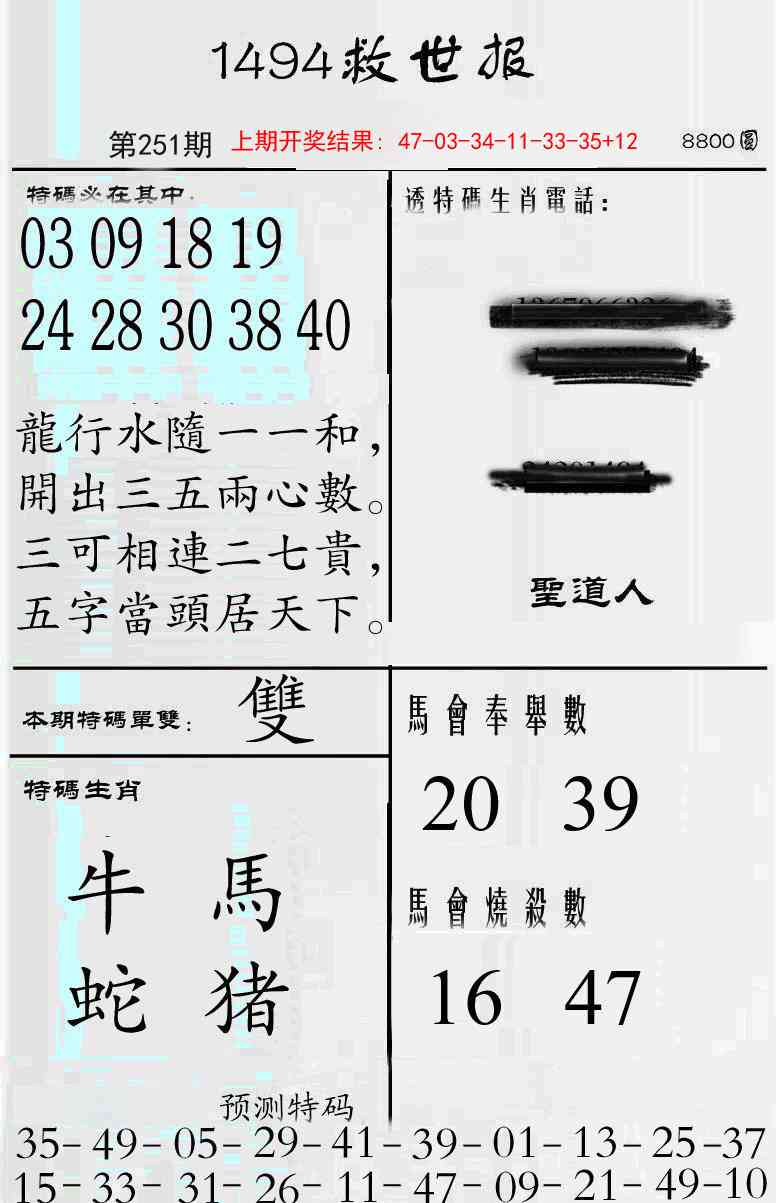 1494救世报
第251期 上期开奖结果: 47-03-34-11-33-35+12 8800圓
特碼必在其中:
03 09 18 19
24 28 30 38 40
龍行水隨一一和,
開出三五兩心數。
三可相連二七貴,
五字當頭居天下。
透特碼生肖電話:
聖道人
本期特碼單雙: 雙
特碼生肖
牛 馬
蛇 猪
馬會奉舉數
20 39
馬會燒殺數
16 47
预测特码
35-49-05-29-41-39-01-13-25-37
15-33-31-26-11-47-09-21-49-10